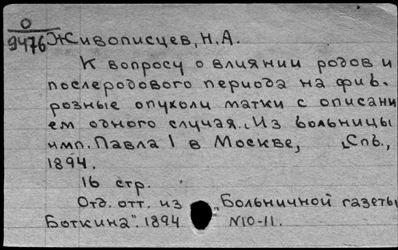 О
9476 Живописцев, Н.А.
К вопросу о влиянии родов и
послеродового периода на фиб-
розные опухоли матки с описани
ем одного случая. Из больницы
имп. Павла I в Москве, Спб.,
1894.
16 стр.
Отд. отт. из „Больничной газеты
Боткина". 1894 N10-11.